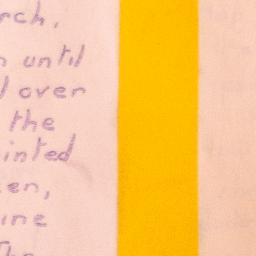 rch.
n until
d over
the
inted
en,
ine